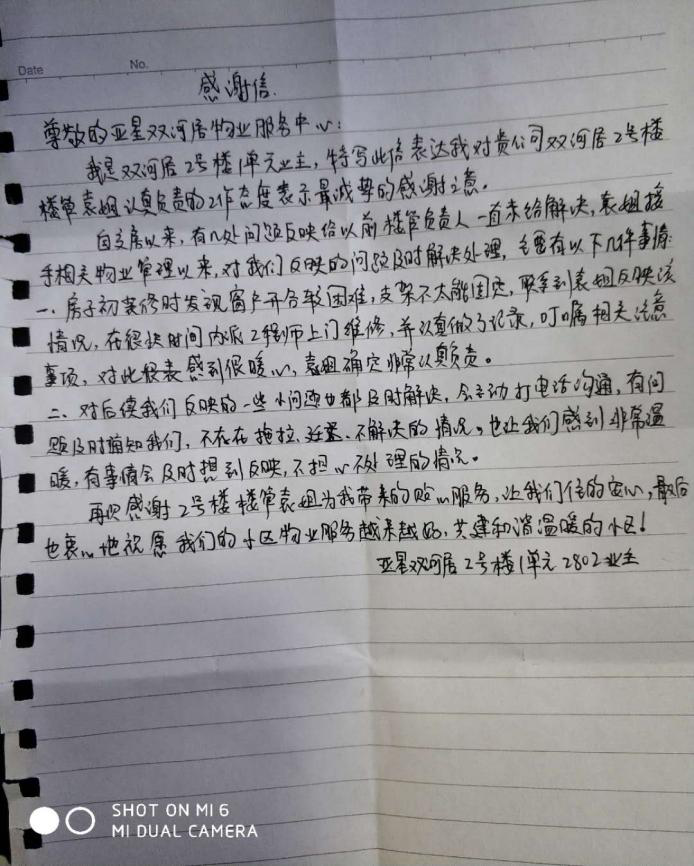 Date
No.
感谢信.
尊敬的亚星双河居物业服务中心:
我是双河居2号楼1单元业主，特写此信表达我对贵公司双河居2号楼
楼管袁姐认真负责的工作态度表示最诚挚的感谢之意。
自交房以来，有几处问题反映给以前楼管负责人一直未给解决，袁姐接
手相关物业管理以来，对我们反映的问题及时解决处理，主要有以下几件事情
一、房子初装修时发现窗户开合较困难，支架不太能固定，联系到袁姐反映该
情况，在很快时间内派工程师上门维修，并认真做了记录，叮嘱相关注意
事项，对此很表感到很暖心，袁姐确实非常认真负责。
二、对后续我们反映的一些小问题也都及时解决，会主动打电话沟通，有问
题及时通知我们，不存在拖拉、延迟、不解决的情况。也让我们感到非常温
暖，有事情会及时想到反映，不担心不处理的情况。
再次感谢2号楼楼管袁姐为我带来的贴心服务，让我们住的安心，最后
也衷心地祝愿我们的小区物业服务越来越好，共建和谐温暖的小区!
亚星双河居2号楼1单元2802业主
SHOT ON MI 6
MI DUAL CAMERA